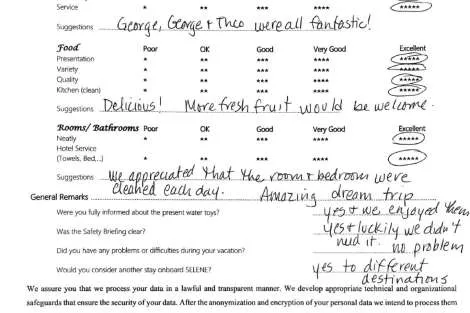 Service * ** *** **** *****
Suggestions George, George + Theo were all fantastic!
Food Poor OK Good Very Good Excellent
Presentation * ** *** **** *****
Variety * ** *** **** *****
Quality * ** *** **** *****
Kitchen (clean) * ** *** **** *****
Suggestions Delicious! More fresh fruit would be welcome.
Rooms/ Bathrooms Poor OK Good Very Good Excellent
Neatly * ** *** **** *****
Hotel Service
(Towels, Bed...) * ** *** **** *****
Suggestions We appreciated that the room + bedroom were
cleaned each day.
General Remarks Amazing dream trip
Were you fully informed about the present water toys? yes + we enjoyed them
Was the Safety Briefing clear? yes + luckily we didn't
need it.
Did you have any problems or difficulties during your vacation? no problem
Would you consider another stay onboard SELENE? yes to different
destinations
We assure you that we process your data in a lawful and transparent manner. We develop appropriate technical and organizational
safeguards that ensure the security of your data. After the anonymization and encryption of your personal data we intend to process them